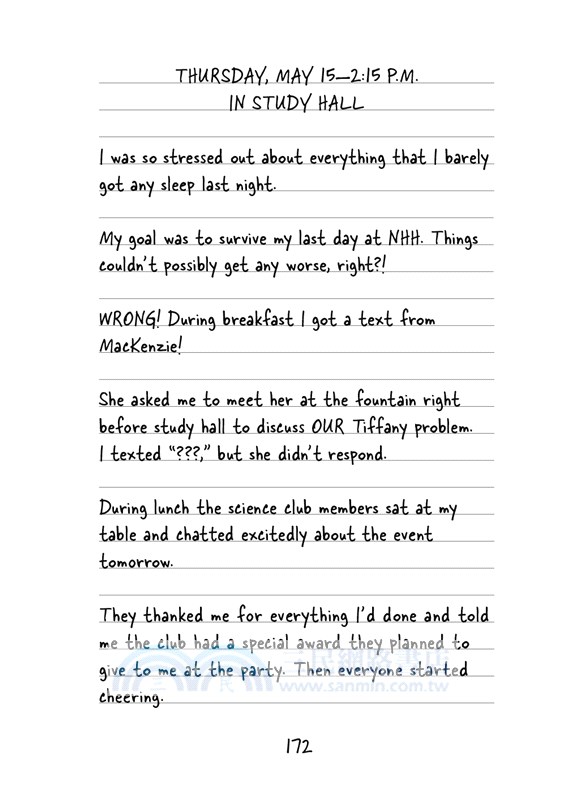 THURSDAY, MAY 15—2:15 P.M.
IN STUDY HALL
I was so stressed out about everything that I barely
got any sleep last night.
My goal was to survive my last day at NHH. Things
couldn't possibly get any worse, right?!
WRONG! During breakfast I got a text from
MacKenzie!
She asked me to meet her at the fountain right
before study hall to discuss OUR Tiffany problem.
I texted “???,” but she didn't respond.
During lunch the science club members sat at my
table and chatted excitedly about the event
tomorrow.
They thanked me for everything I'd done and told
me the club had a special award they planned to
give to me at the party. Then everyone started
cheering.
三民網路書店
www.sanmin.com.tw
172